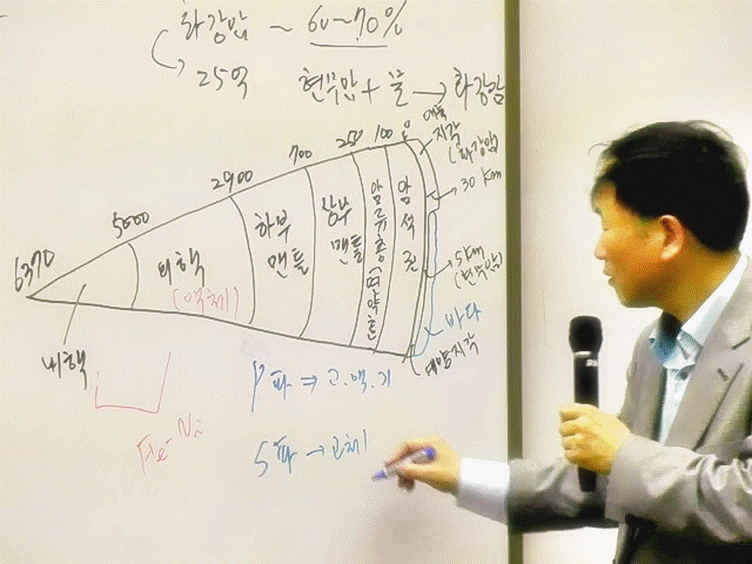 화강암 ~ 60~70%
25억 현무암 + 물 → 화강암
6370 5000 2900 700 250 100 0
대륙지각
(화강암)
30 Km
5Km
(현무암)
바다
대양지각
암석권
암류층(연약층)
상부
맨틀
하부
맨틀
외핵
(액체)
내핵
Fe-Ni
P파 ⇒ 고.액.기
S파 → 고체